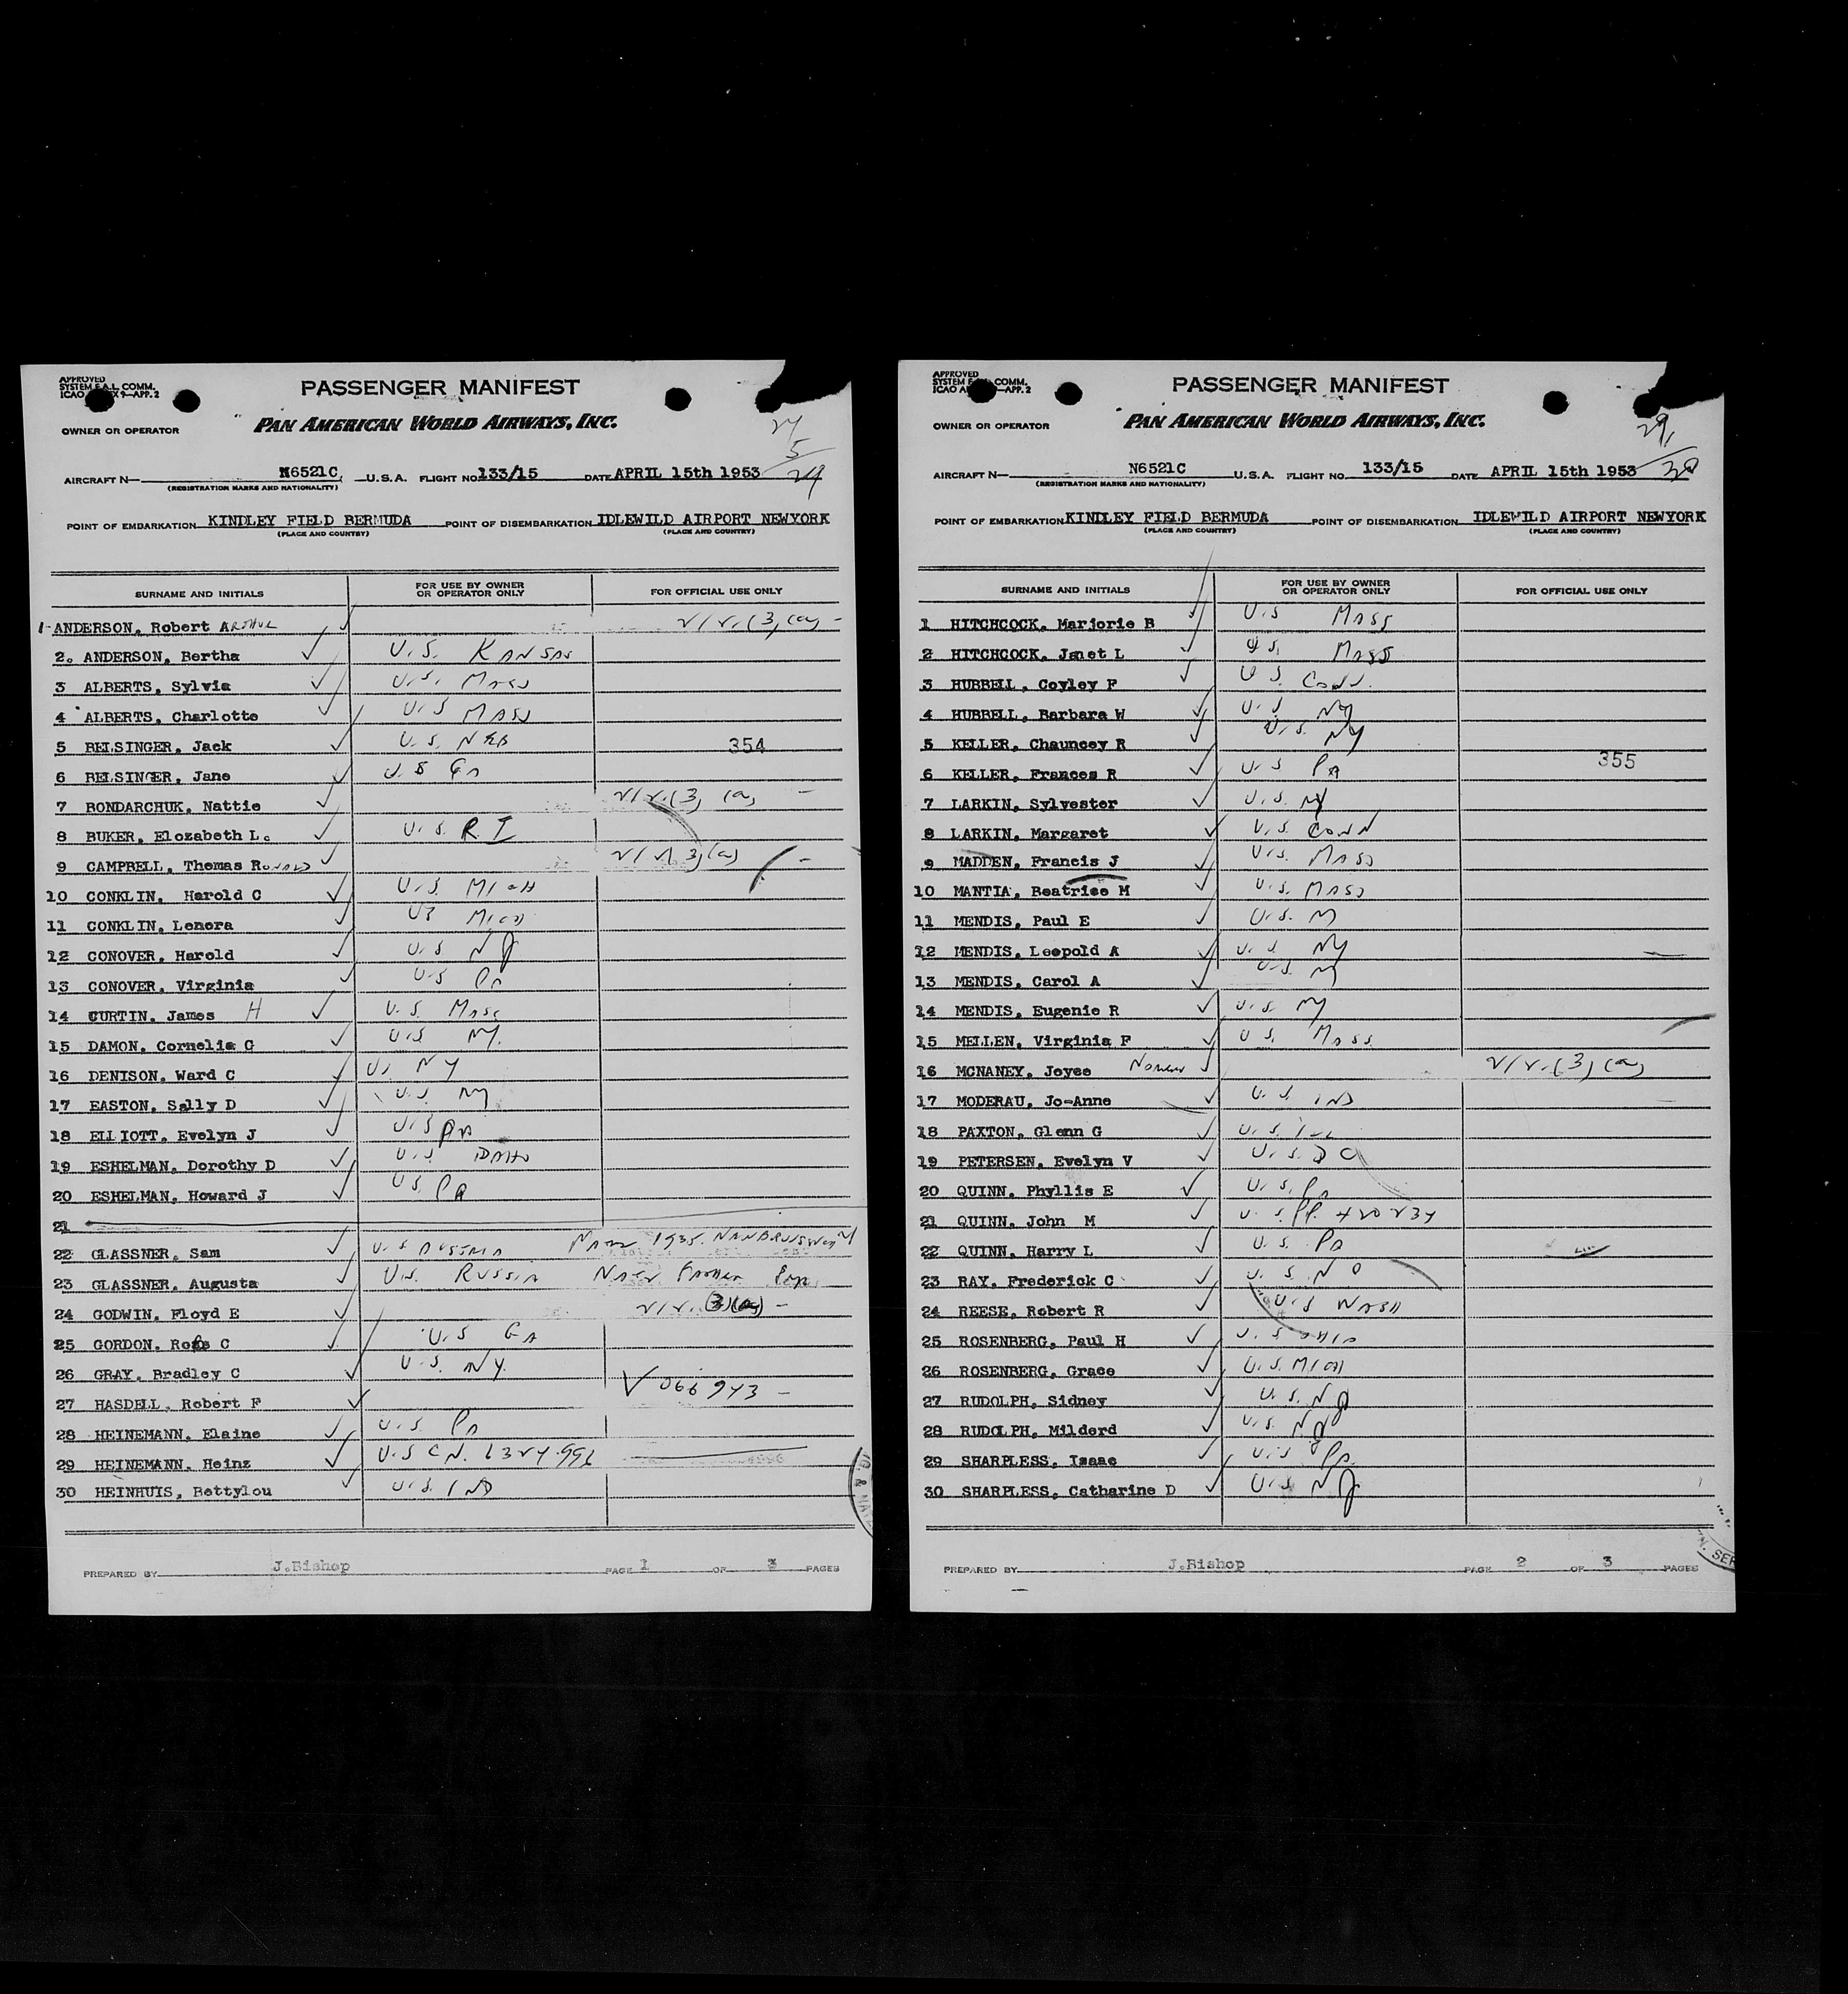 APPROVED
SYSTEM F.A.L. COMM.
ICAO 9—APP. 2
PASSENGER MANIFEST
PAN AMERICAN WORLD AIRWAYS, INC.
OWNER OR OPERATOR
AIRCRAFT N— N6521C U.S.A. FLIGHT NO. 133/15 DATE APRIL 15th 1953
(REGISTRATION MARKS AND NATIONALITY)
POINT OF EMBARKATION KINDLEY FIELD BERMUDA POINT OF DISEMBARKATION IDLEWILD AIRPORT NEWYORK
(PLACE AND COUNTRY) (PLACE AND COUNTRY)
SURNAME AND INITIALS FOR USE BY OWNER OR OPERATOR ONLY FOR OFFICIAL USE ONLY
1 ANDERSON, Robert ARTHUR (3)(a) -
2. ANDERSON, Bertha U.S. KANSAS
3 ALBERTS, Sylvia U.S. MASS
4 ALBERTS, Charlotte U.S MASS
5 BELSINGER, Jack U.S. NEB 354
6 BELSINGER, Jane U.S GA
7 BONDARCHUK, Nattie (3) (a) -
8 BUKER, Elozabeth L. U.S. R I
9 CAMPBELL, Thomas RONALD 3)(a) -
10 CONKLIN, Harold C U.S. MICH
11 CONKLIN, Lenora US MICH
12 CONOVER, Harold U.S NJ
13 CONOVER, Virginia U.S PA
14 CURTIN, James H U.S. MASS
15 DAMON, Cornelia G U.S NY.
16 DENISON, Ward C U. NY
17 EASTON, Sally D U.S. NY
18 ELLIOTT, Evelyn J U.S PA
19 ESHELMAN, Dorothy D U.S. IDAHO
20 ESHELMAN, Howard J U.S. PA
21
22 GLASSNER, Sam U.S 1935
23 GLASSNER, Augusta U.S. RUSSIA
24 GODWIN, Floyd E (3)(a) -
25 GORDON, Rose C U.S GA
26 GRAY, Bradley C U.S. NY.
27 HASDELL, Robert F V 066943 -
28 HEINEMANN, Elaine U.S. PA
29 HEINEMANN, Heinz U.S C.N. 6324996
30 HEINHUIS, Bettylou U.S. IND
PREPARED BY J.Bishop PAGE 1 OF 3 PAGES
APPROVED
SYSTEM F COMM.
ICAO —APP. 2
PASSENGER MANIFEST
PAN AMERICAN WORLD AIRWAYS, INC.
OWNER OR OPERATOR
AIRCRAFT N— N6521C U.S.A. FLIGHT NO. 133/15 DATE APRIL 15th 1953
(REGISTRATION MARKS AND NATIONALITY)
POINT OF EMBARKATION KINDLEY FIELD BERMUDA POINT OF DISEMBARKATION IDLEWILD AIRPORT NEWYORK
(PLACE AND COUNTRY) (PLACE AND COUNTRY)
SURNAME AND INITIALS FOR USE BY OWNER OR OPERATOR ONLY FOR OFFICIAL USE ONLY
1 HITCHCOCK, Marjorie B U.S MASS
2 HITCHCOCK, Janet L U.S. MASS
3 HUBBELL, Coyley F U.S. CONN.
4 HUBBELL, Barbara W U.S NY
5 KELLER, Chauncey R U.S. NY
6 KELLER, Frances R U.S PA 355
7 LARKIN, Sylvester U.S. NY
8 LARKIN, Margaret U.S. CONN
9 MADDEN, Francis J U.S. MASS
10 MANTIA, Beatrice M U.S. MASS
11 MENDIS, Paul E U.S.
12 MENDIS, Leopold A U.S NY
13 MENDIS, Carol A U.S. NY
14 MENDIS, Eugenie R U.S. NY
15 MELLEN, Virginia F U.S. MASS.
16 MCNANEY, Joyee (3) (a)
17 MODERAU, Jo-Anne U.S. IND
18 PAXTON, Glenn G U.S.
19 PETERSEN, Evelyn V U.S. D C
20 QUINN, Phyllis E U.S. PA
21 QUINN, John M U.S. PP. 420234
22 QUINN, Harry L U.S. PA
23 RAY, Frederick C U.S.
24 REESE, Robert R U.S WASH
25 ROSENBERG, Paul H U.S OHIO
26 ROSENBERG, Grace U.S. MICH
27 RUDOLPH, Sidney U.S. NJ
28 RUDOLPH, Milderd U.S. NJ
29 SHARPLESS, Isaac U.S PA.
30 SHARPLESS, Catharine D U.S. NJ
PREPARED BY J.Bishop PAGE 2 OF 3 PAGES